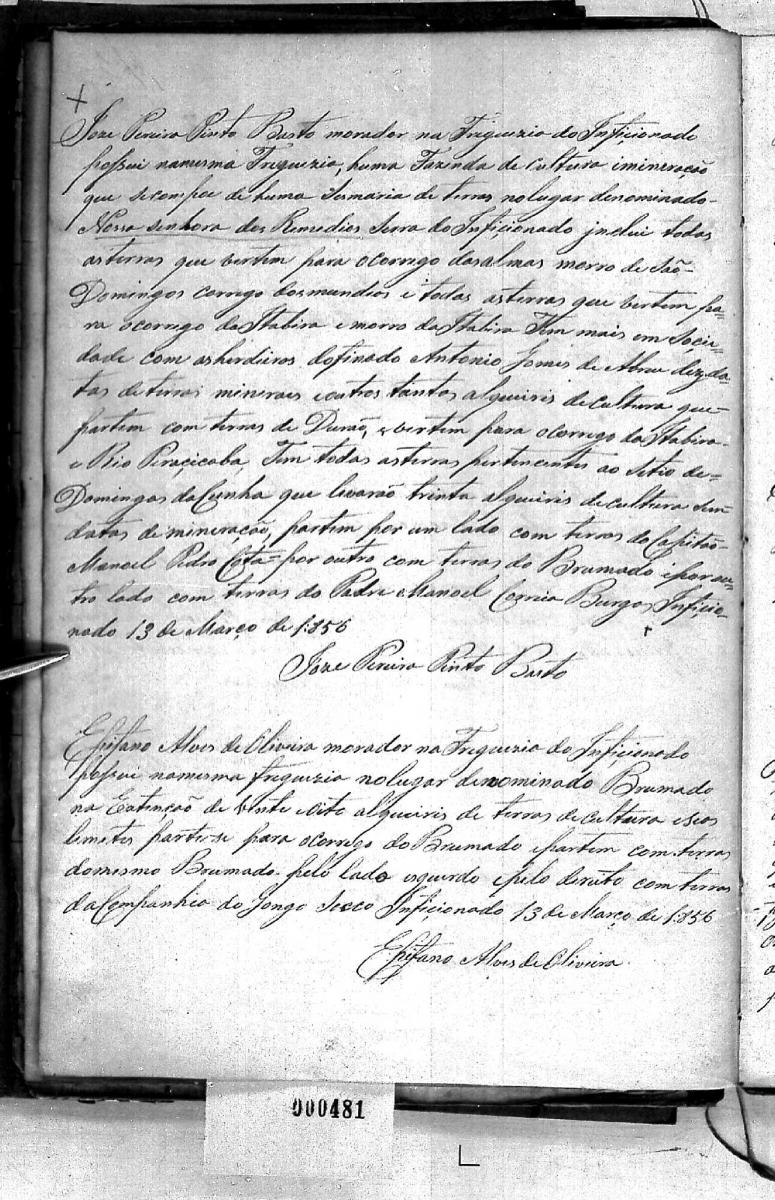 Joze Pereira Pinto Basto morador na Freguezia do Inficionado
possui namesma Freguezia, huma Fazenda de cultura imineração
que secompoe de huma Sesmaria de terras nolugar denominado-
Nossa senhora dos Remedios Serra do Inficionado inclui todas
asterras que vertem para ocorrego dasalmas morro de São-
Domingos corrego dosmundios e todas asterras que vertem pa-
ra ocorrego da Itabira emorro da Itabira Tem mais em Socie-
dade com osherdeiros dofinado Antonio Gomes de Abreu dez da-
tas deterras mineraes eoutros tantos alqueiris decultura que-
partem com terras de Durão, e vertem para ocorrego da Itabira-
e Rio Piraçicaba, Tem todas asterras pertencentes ao Setio de-
Domingos daCunha que levarão trinta alqueiris decultura
datas demineração, partem por um lado com terras do Capitão-
Manoel Pedro Cota=por outro com terras do Brumado ipor ou-
tro lado com terras do Padre Manoel Correia Burgos, Inficio-
nado 13 de Março de 1856
Joze Pereira Pinto Basto
Epifano Alves de Oliveira morador na Freguezia do Inficionado
possui namesma freguezia nolugar denominado Brumado
na Extinção de vinte eoito alqueiris de terras decultura eseos
lemetes partese para ocorrego do Brumado epartem comterras
domesmo Brumado pelo lado isquerdo epelo dereito com terras
daCompanhia do Gongo Socco Inficionado 13 de Março de 1856
Epifano Alves de Oliveira
000481